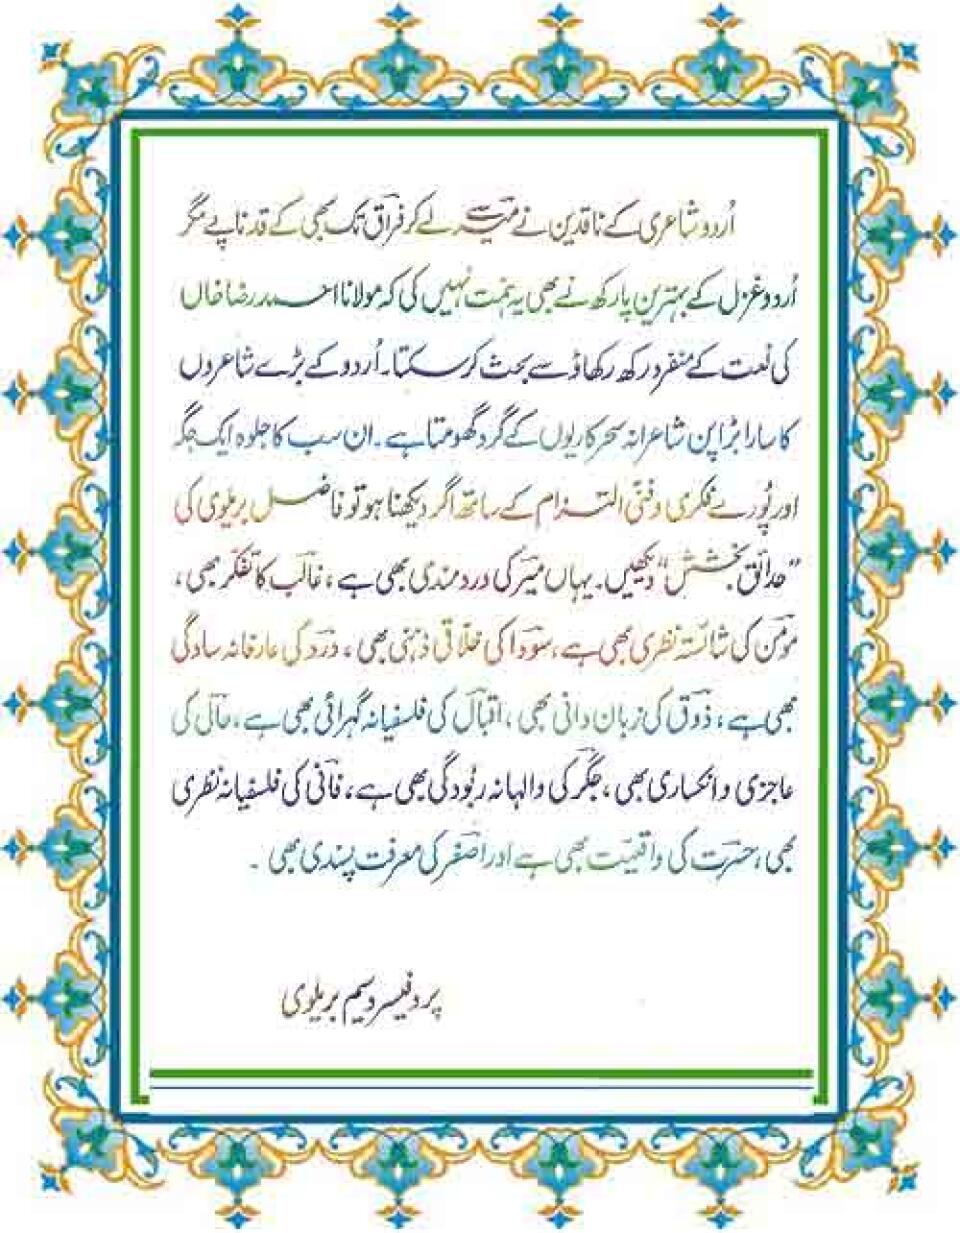 اُردو شاعری کے ناقدین نے میرؔ سے لے کر فراقؔ تک بھی کے قد ناپے مگر
اُردو غزل کے بہترین پارکھ نے بھی یہ ہمت نہیں کی کہ مولانا احمد رضا خاں
کی نعت کے منفرد رکھ رکھاؤ سے بحث کر سکتا۔ اُردو کے بڑے شاعروں
کا سارا بڑا پن شاعرانہ سحر کاریوں کے گرد گھومتا ہے۔ ان سب کا جلوہ ایک جگہ
اور پُورے فکری و فنّی التزام کے ساتھ اگر دیکھنا ہو تو فاضل بریلوی کی
”حدائق بخشش“ دیکھیں۔ یہاں میرؔ کی درد مندی بھی ہے، غالبؔ کا تفکّر بھی،
مومنؔ کی شائستہ نظری بھی ہے، سوداؔ کی خلّاقی ذہنی بھی، دردؔ کی عارفانہ سادگی
بھی ہے، ذوقؔ کی زبان دانی بھی، اقبالؔ کی فلسفیانہ گہرائی بھی ہے، حالیؔ کی
عاجزی و انکساری بھی، جگرؔ کی والہانہ ربُودگی بھی ہے، فانیؔ کی فلسفیانہ نظری
بھی، حسرتؔ کی واقعیّت بھی ہے اور اصغرؔ کی معرفت پسندی بھی۔
پروفیسر وسیم بریلوی